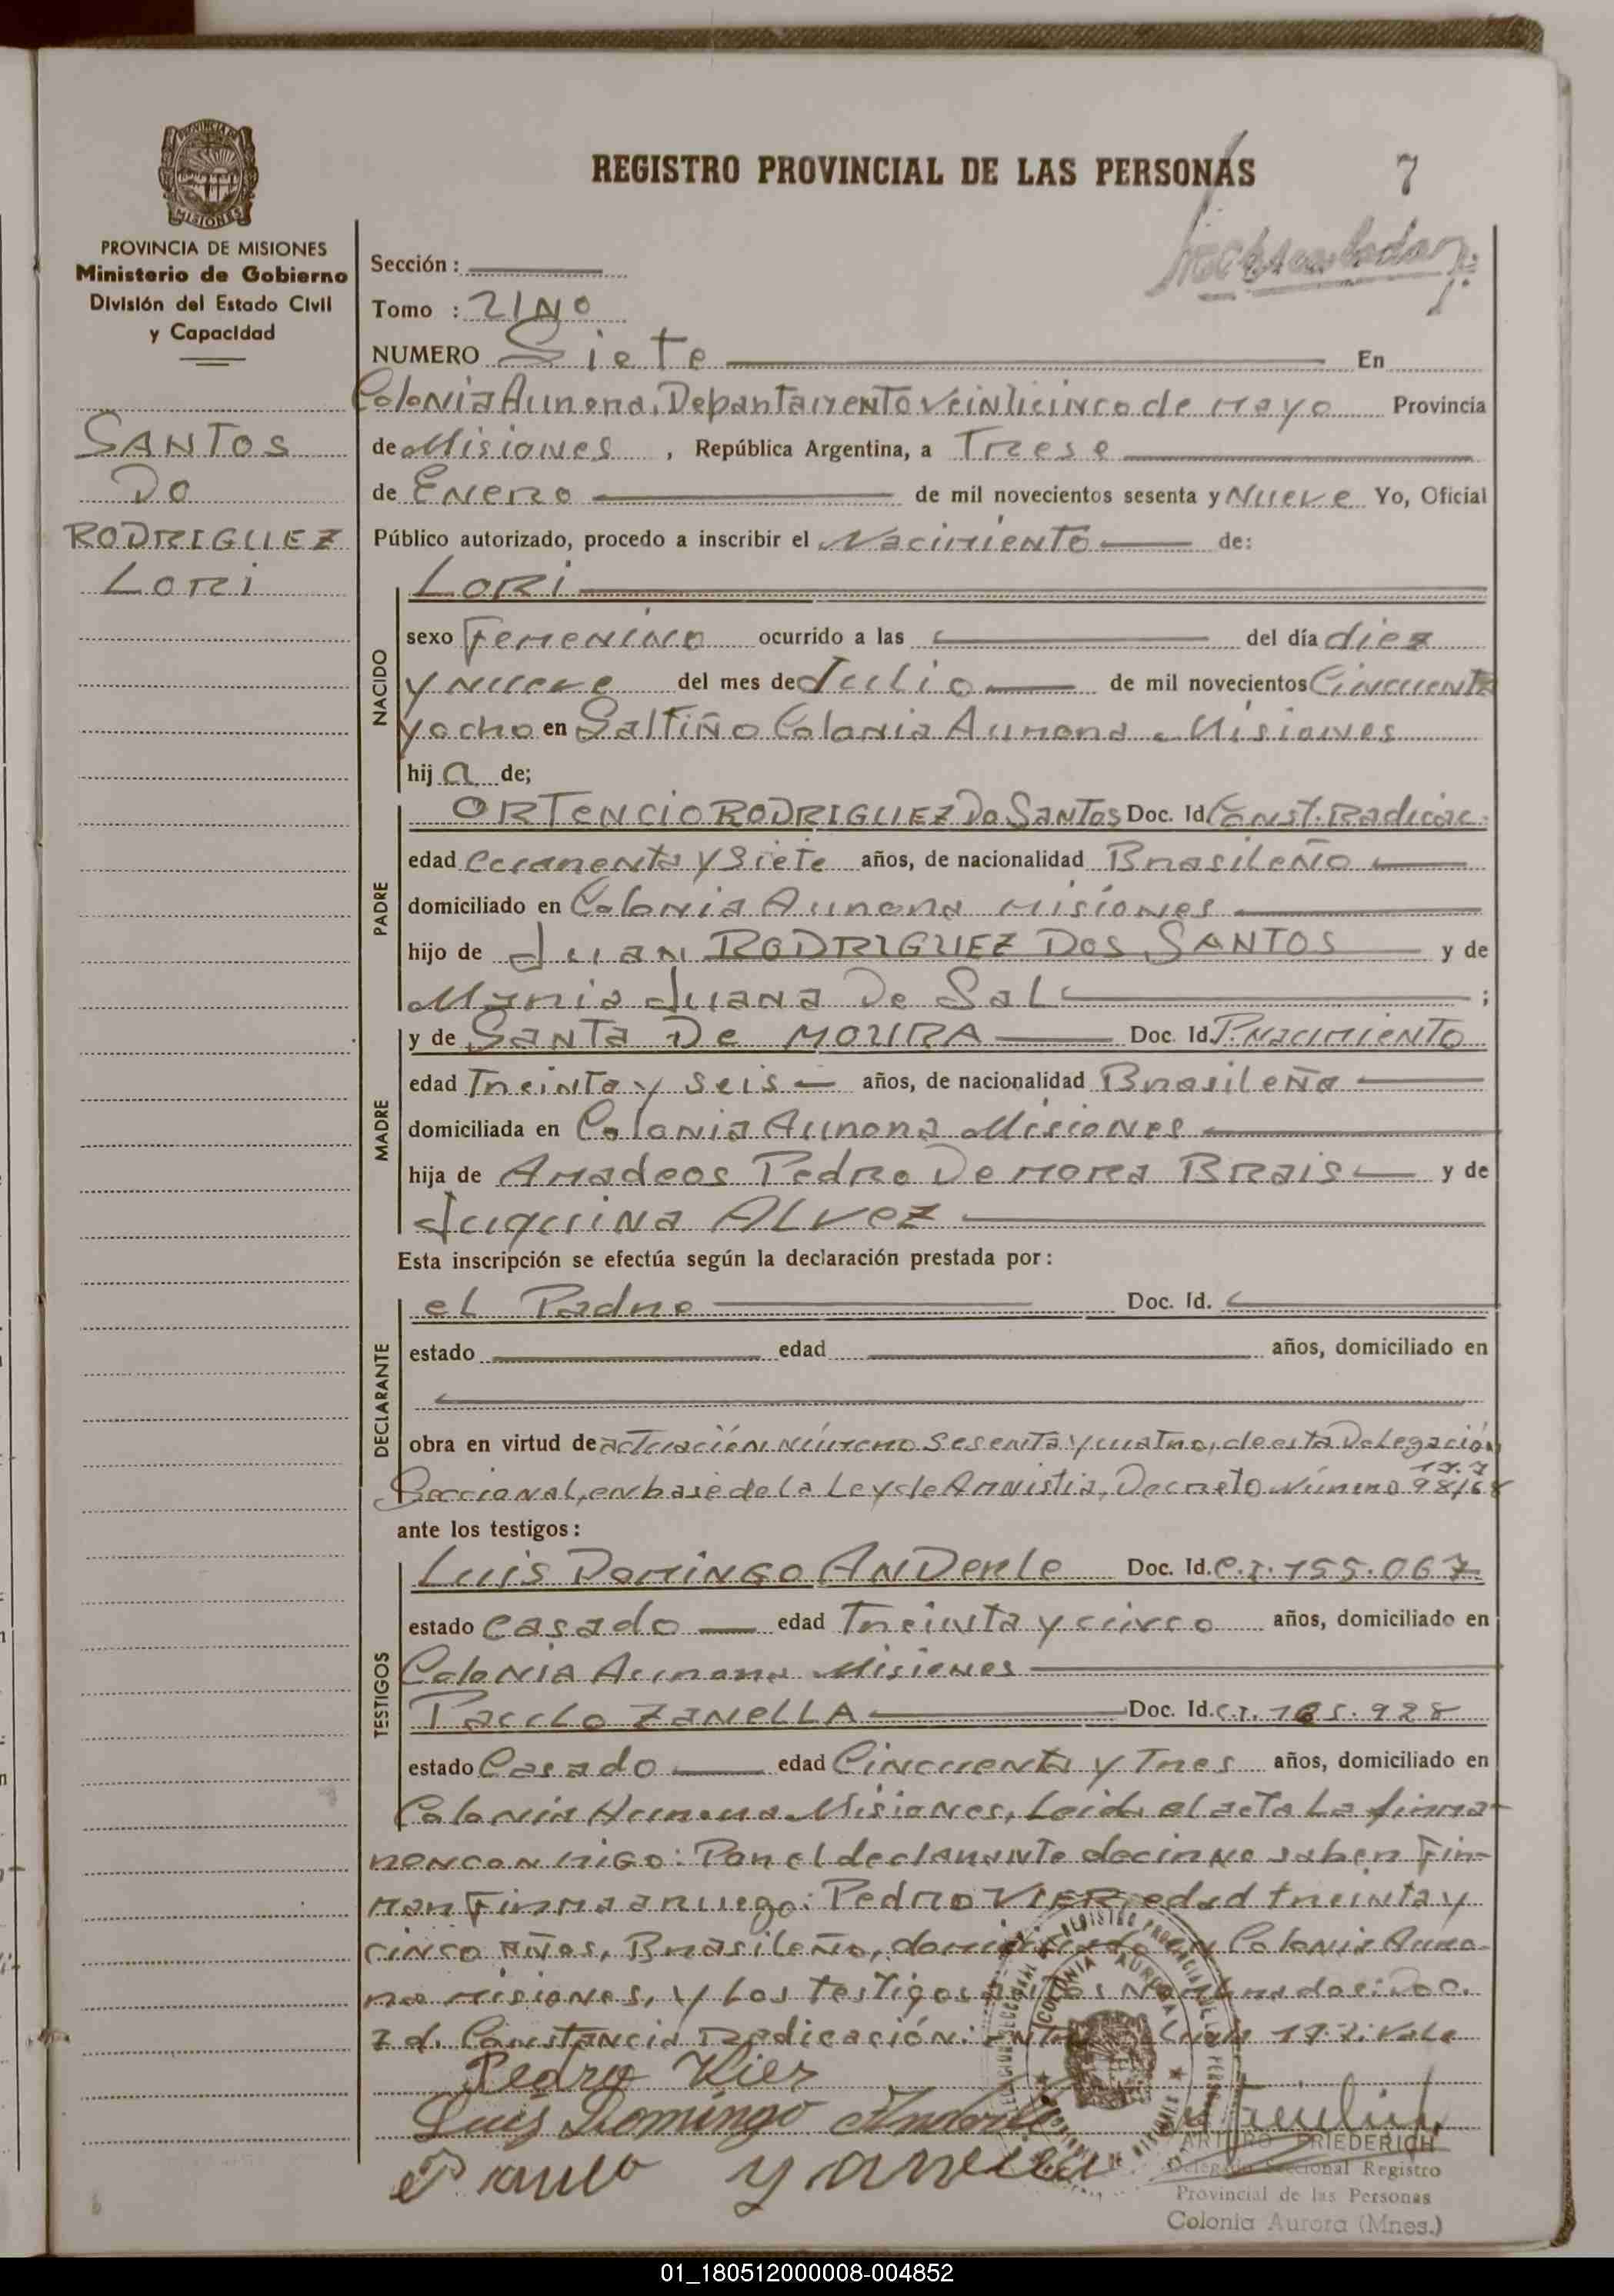 REGISTRO PROVINCIAL DE LAS PERSONAS
7
MISIONES
PROVINCIA DE MISIONES
Ministerio de Gobierno
División del Estado Civil
y Capacidad
SANTOS
DO
RODRIGUEZ
LORI
Sección:
Tomo : 21Nº
NUMERO Siete En
Colonia Aurora, Departamento Veinticinco de Mayo Provincia
de Misiones, República Argentina, a Trese
de Enero de mil novecientos sesenta y Nueve Yo, Oficial
Público autorizado, procedo a inscribir el Nacimiento de:
NACIDO
LORI
sexo Femenino ocurrido a las del día diez
y Nueve del mes de Julio de mil novecientos Cincuenta
y ocho en Saltiño Colonia Aurora Misiones
hija de;
PADRE
ORTENCIO RODRIGUEZ DO SANTOS Doc. Id. Const. Radicac.
edad Cuarenta y Siete años, de nacionalidad Brasileño
domiciliado en Colonia Aurora Misiones
hijo de Juan RODRIGUEZ DOS SANTOS y de
Maria Juana De Sal ;
MADRE
y de SANTA De MOURA Doc. Id. P. Nacimiento
edad Treinta y Seis años, de nacionalidad Brasileña
domiciliada en Colonia Aurora Misiones
hija de Amadeos Pedro De mora Brais y de
Juquina ALVEZ
Esta inscripción se efectúa según la declaración prestada por:
DECLARANTE
el Padre Doc. Id.
estado edad años, domiciliado en
obra en virtud de actuación Número Sesenta y cuatro, de esta Delegación
Seccional, en base de la Ley de Amnistia, Decreto Número 98/68
17.7
ante los testigos:
TESTIGOS
Luis Domingo Anderle Doc. Id. C.I. 155.067
estado Casado edad Treinta y cinco años, domiciliado en
Colonia Aurora Misiones
Paulo Zanella Doc. Id. C.I. 165.928
estado Casado edad Cincuenta y Tres años, domiciliado en
Colonia Aurora Misiones, Leida el acta La firma-
ron conmigo: Por el declarante decir no saber Fir-
mar Firma a ruego: Pedro VIER, edad treinta y
cinco Años, Brasileño, domiciliado en Colonia Auro-
ra Misiones, y Los Testigos antes Nombrados: Doc.
Id. Constancia Radicación: 17.7: Vale
Pedro Vier
Luis Domingo Anderle
Paulo Zanella
COLONIA AURORA
ARTURO FRIEDERICH
Delegado Seccional Registro
Provincial de las Personas
Colonia Aurora (Mnes.)
01_180512000008-004852